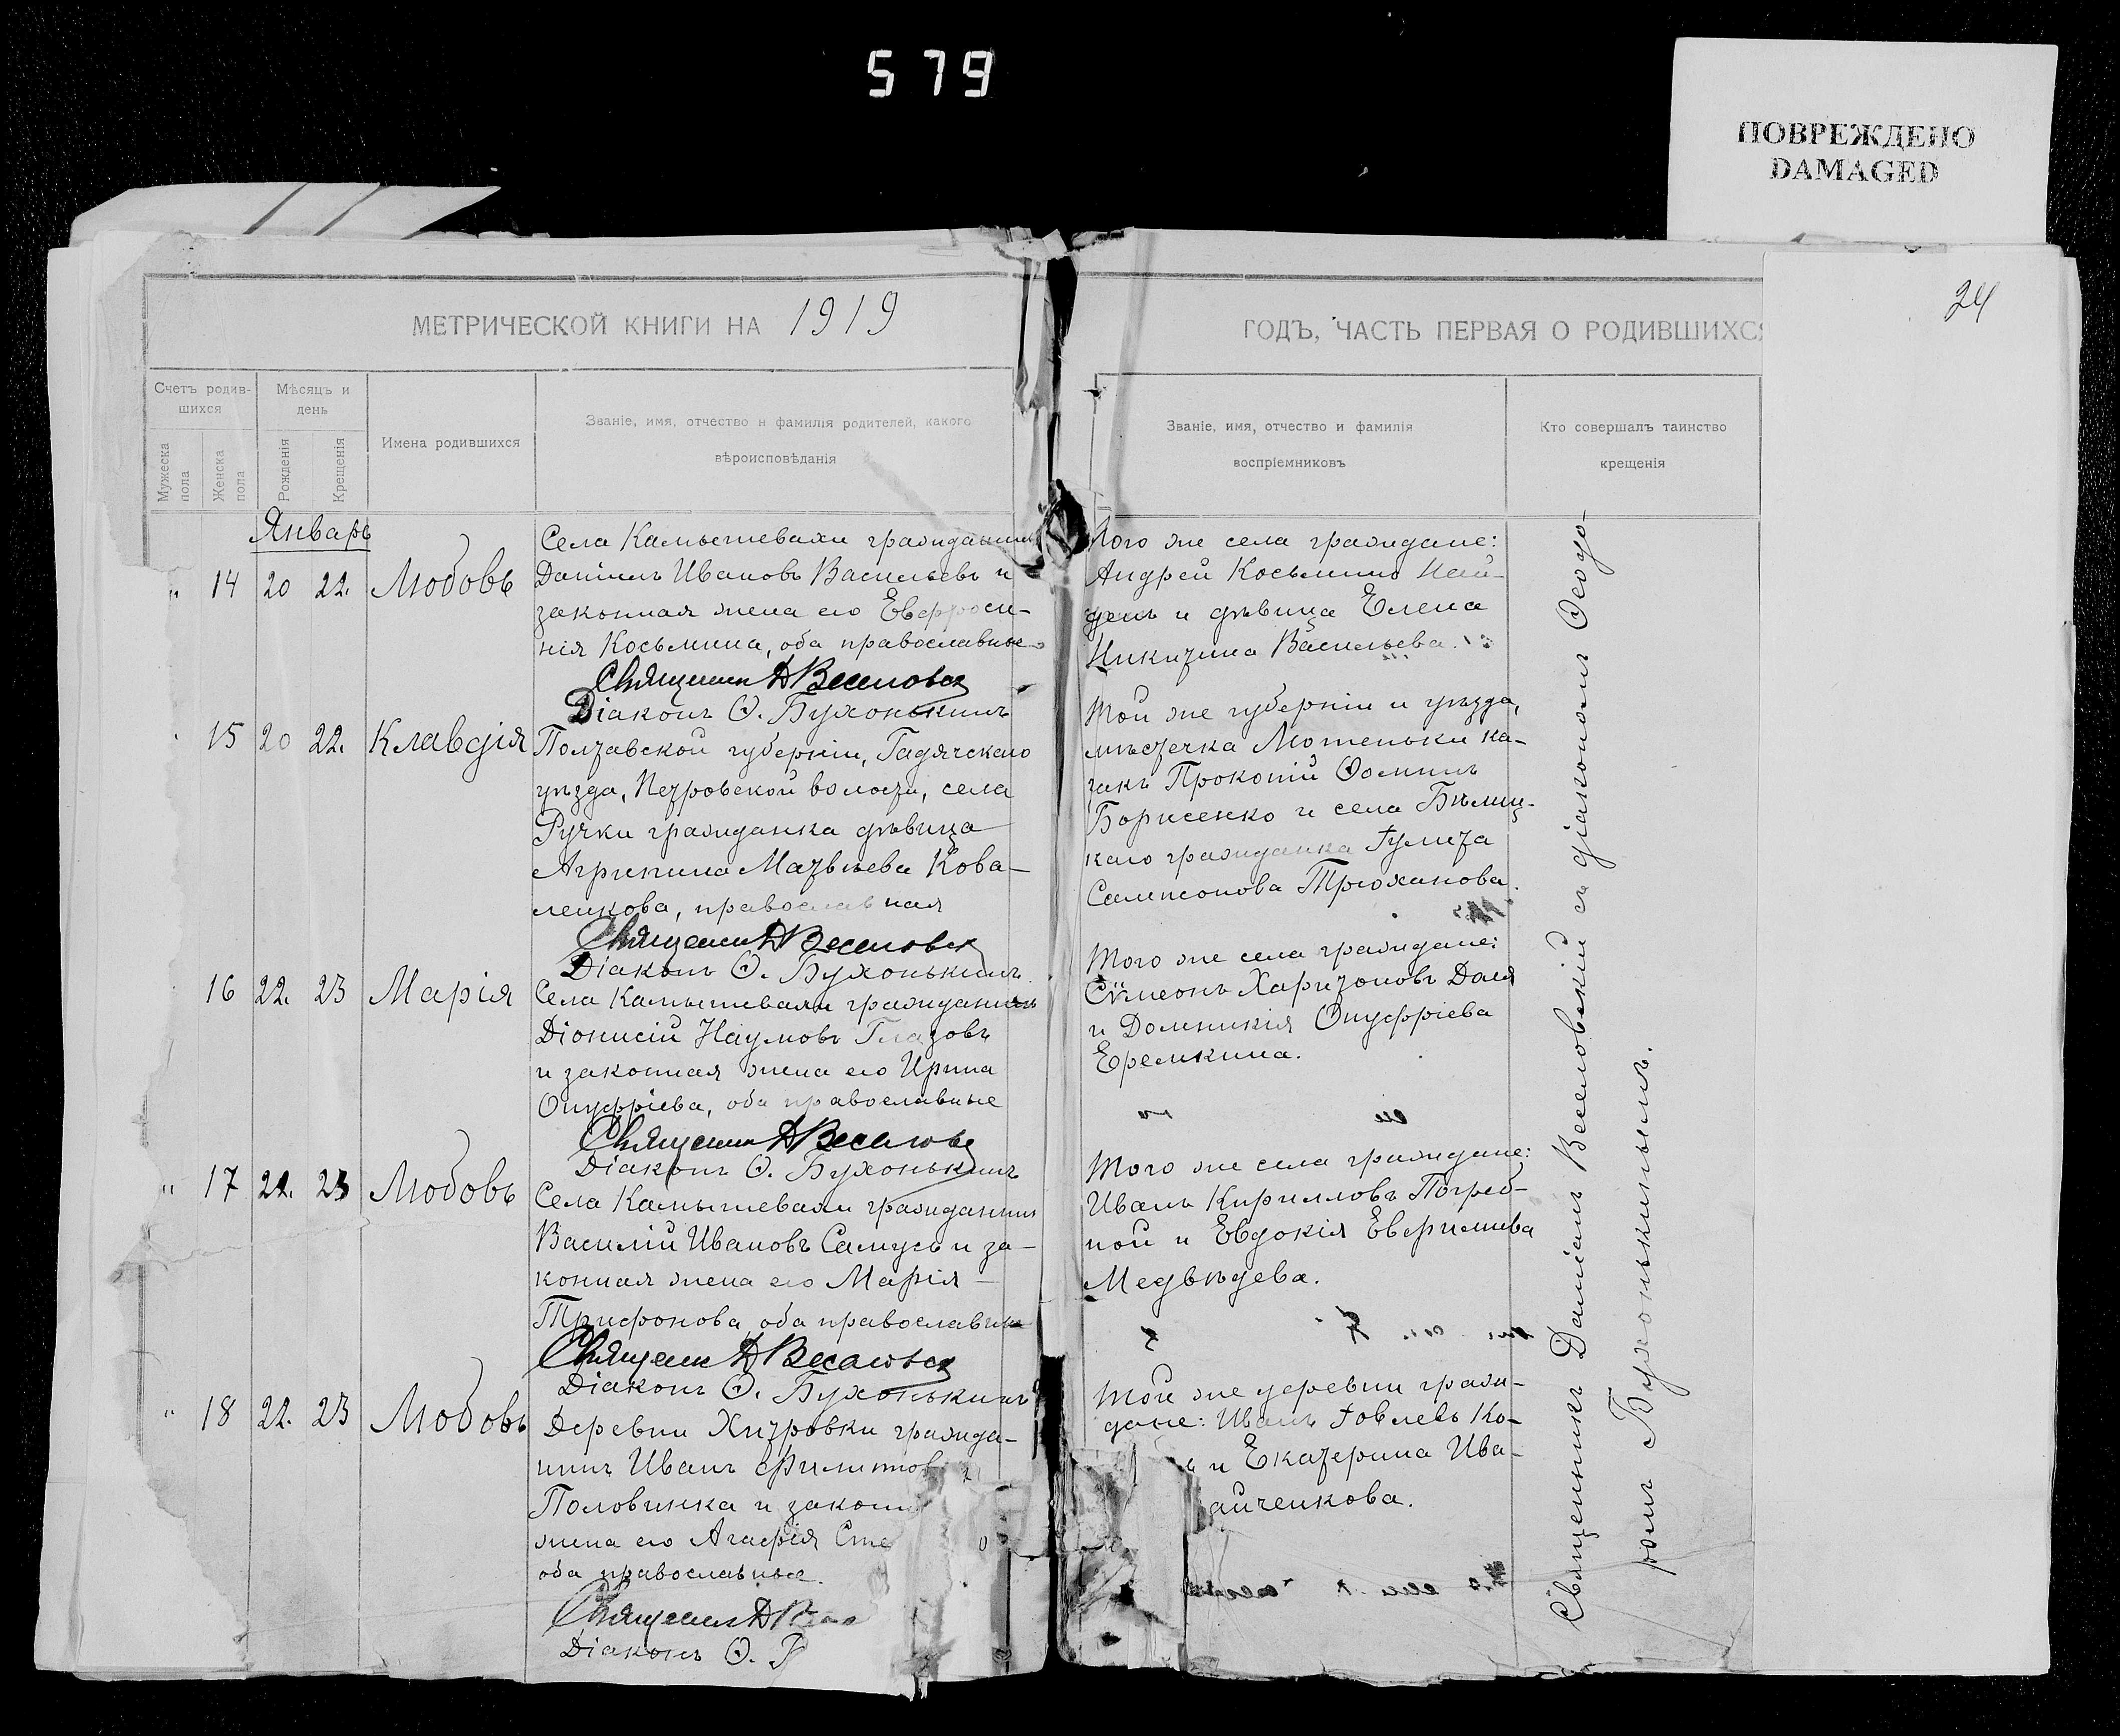 579
ПОВРЕЖДЕНО
DAMAGED
24
МЕТРИЧЕСКОЙ КНИГИ НА 1919
ГОДЪ, ЧАСТЬ ПЕРВАЯ О РОДИВШИХСЯ
Счетъ родив-
шихся
Мужеска
пола
Женска
пола
Мѣсяцъ и
день
Рожденія
Крещенія
Имена родившихся
Званіе, имя, отчество и фамилія родителей, какого
вѣроисповѣданія
Званіе, имя, отчество и фамилія
воспріемниковъ
Кто совершалъ таинство
крещенія
Январь
" 14 20 22. Любовь
Села Камышевахи гражданинъ
Даніилъ Ивановъ Васильевъ и
законная жена его Евфроси-
нія Косьмина, оба православные
Священникъ Д Веселовск
Діаконъ Ѳ. Бухонькинъ
Того же села граждане:
Андрей Косьминъ Най-
денъ и дѣвица Елена
Никитина Васильева.
15 20 22. Клавдія
Полтавской губерніи, Гадячскаго
уѣзда, Петровской волости, села
Ручки гражданка дѣвица
Агрипина Матвѣева Кова-
ленкова, православная
Священникъ Д Веселовск
Діаконъ Ѳ. Бухонькинъ
Той же губерніи и уѣзда,
мѣстечка Лютеньки ка-
закъ Прокопій Ѳоминъ
Борисенко и села Бѣлиц-
каго гражданка Іулита
Сампсонова Трюханова.
16 22. 23 Марія
Села Камышевахи гражданинъ
Діонисій Наумовъ Глазовъ
и законная жена его Ирина
Онуфріева, оба православные
Священникъ Д Веселовс
Діаконъ Ѳ. Бухонькинъ
Того же села граждане:
Сѵмеонъ Харитоновъ Даля
и Домникія Онуфріева
Еремкина.
" 17 22. 23 Любовь
Села Камышевахи гражданинъ
Василій Ивановъ Самусь и за-
конная жена его Марія
Трифонова, оба православные
Священникъ Д Веселовск
Діаконъ Ѳ. Бухонькинъ
Того же села граждане:
Иванъ Кирилловъ Погреб-
ной и Евдокія Евфимиева
Медвѣдева.
" 18 22. 23 Любовь
Деревни Хитровки гражда-
нинъ Иванъ Филипповъ
Половинка и законн
жена его Агафія Сте
оба православные.
Священникъ Д В
Діаконъ Ѳ.
Той же деревни граж-
дане: Иванъ Іовлевъ Ко-
ъ и Екатерина Ива-
айченкова.
Священникъ Даніилъ Веселовскій съ діакономъ Ѳеодо-
ромъ Бухонькинымъ.